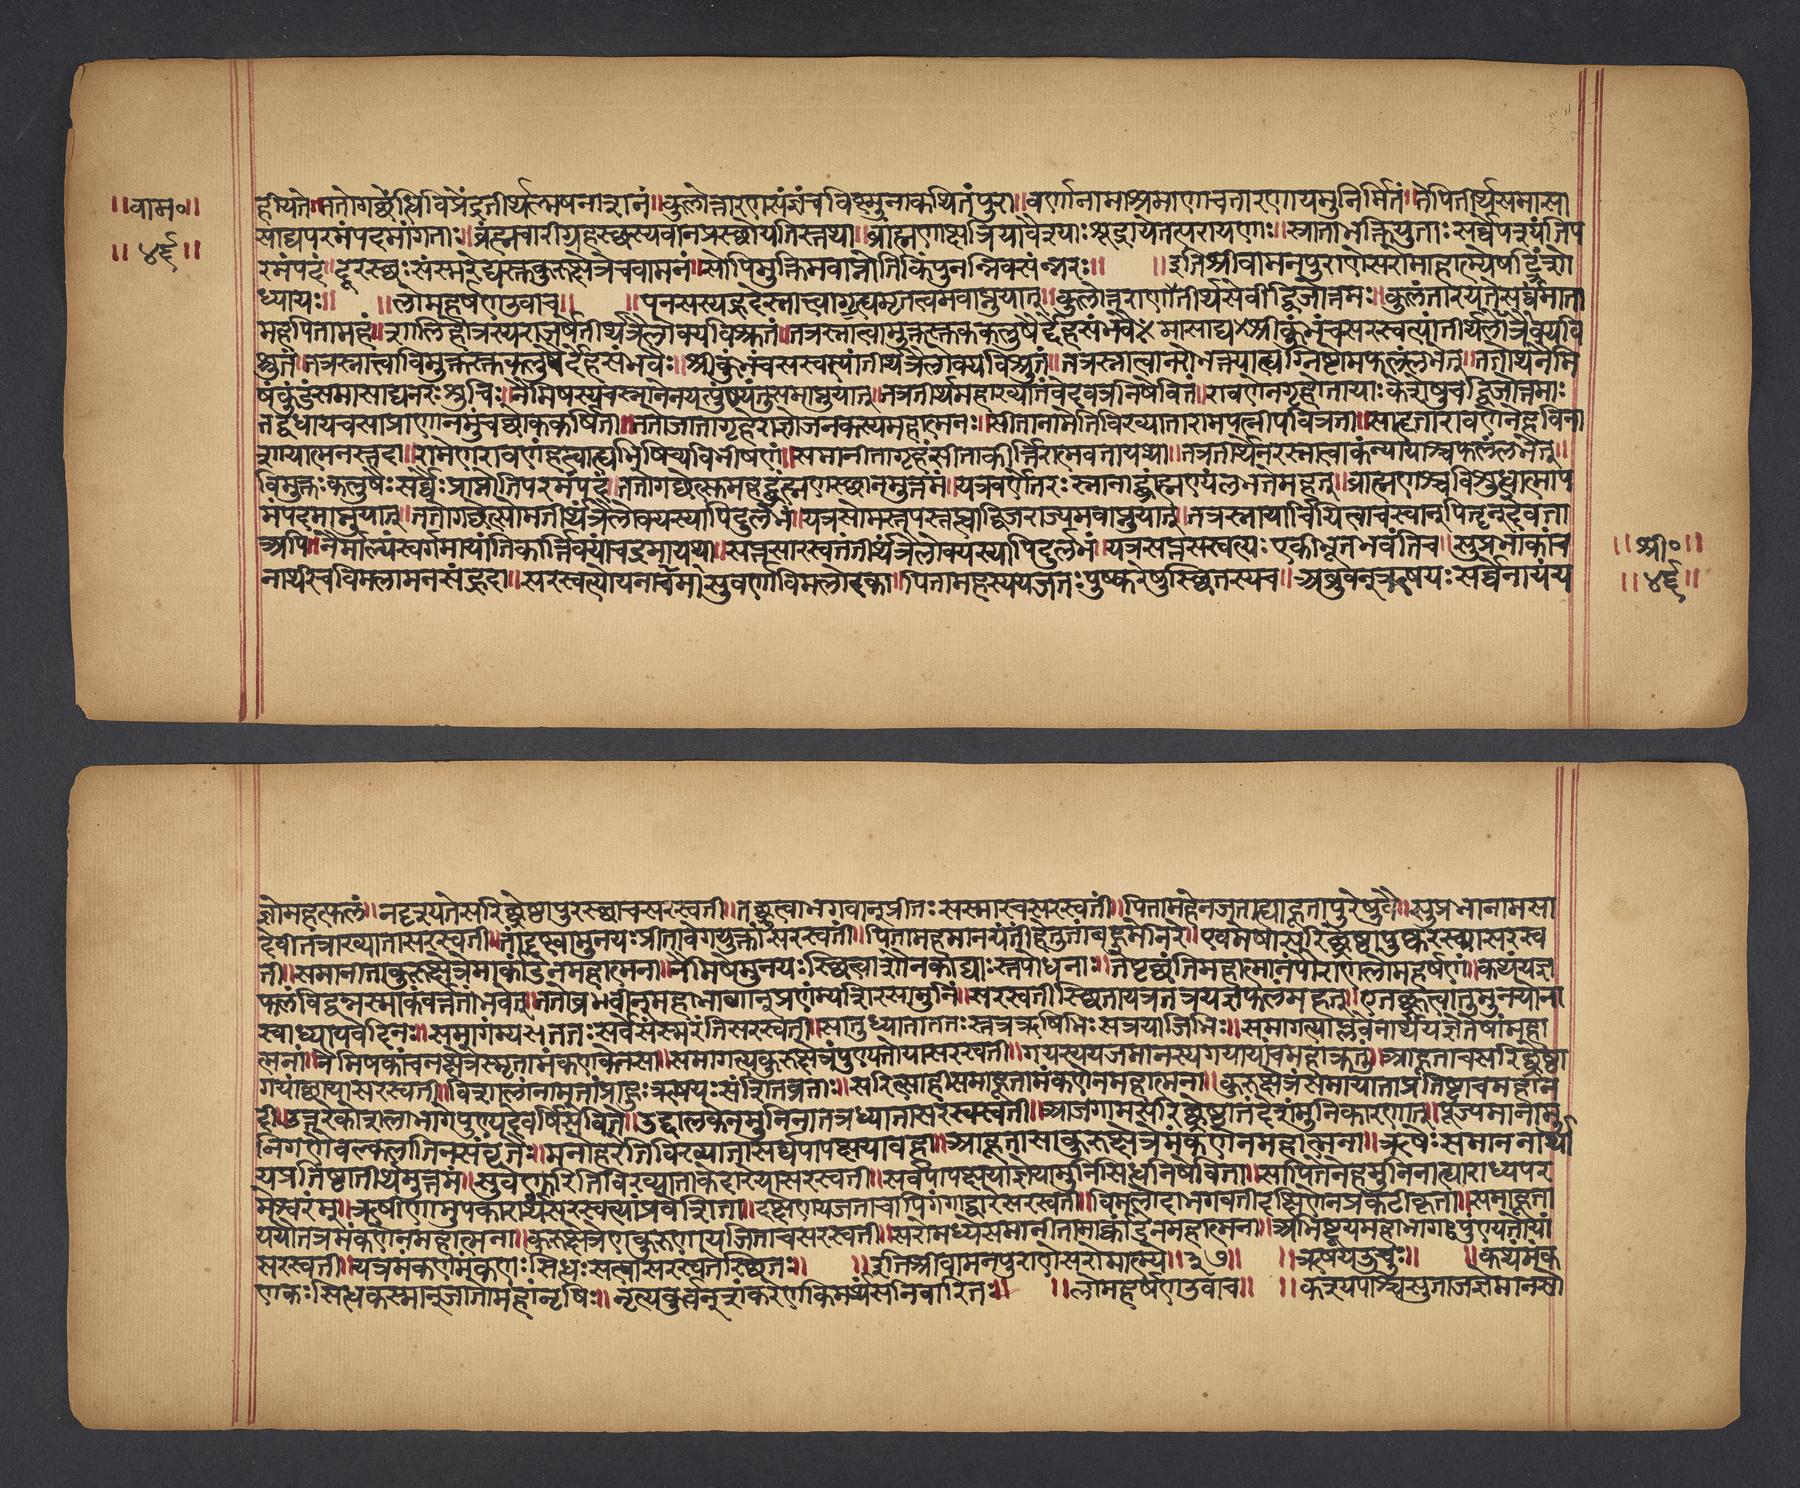 ॥वाम॰॥
॥४६॥
हीयते॥ततोगच्छेद्धिविप्रेंद्रतीर्थकल्मषनाशनं॥कुलोत्तारणसंज्ञंचविष्णुनाकथितंपुरा॥वर्णानामाश्रमाणांचतारणायमुनिर्मितं॥तेपितीर्थसमासा
साद्यपरमंपदमांगताः॥ब्रंह्मचारीगृहस्छस्यवानप्रस्छोयतिस्तथा॥ब्रांह्मणाक्षत्रियावैश्याःशूद्रायेतत्परायणाः॥स्नाताभक्तियुताःसर्व्वेपश्यंतिप
रमंपदं॥दूरस्छःसंस्मरेद्यस्तुकुरुक्षेत्रंचवामनं॥सोपिमुक्तिमवाप्नोतिकिंपुनन्निवसंन्नरः॥ ॥इतिश्रीवामनपुराणेसरोमाहात्म्येषट्त्रिंशो
ध्यायः॥ ॥लोमहर्षणउवाच॥ ॥पुनसस्यह्रदेस्नात्त्वागृत्यमृतत्वमवाप्नुयात्॥कुलोत्तराणांतीर्थसेवीद्विजोत्तमः॥कुलंतारयतेसर्व्वंमाता
महपितामहं॥शालिहोत्रस्यराजर्षेतीर्थंत्रैलोक्यविश्रुतं॥तत्रस्नात्वामुक्तस्तुकलुषैर्देहसंभवैः मासाद्य श्रीकुंभंचसरस्वत्यांतीर्थंलोत्रैक्यवि
श्रुतं॥तत्रस्नात्त्वाविमुक्तस्तुकलुषैर्देहसंभवैः॥श्रीकुंभंचसरस्वत्यांतीर्थंत्रैलोक्यविश्रुतं॥तत्रस्नात्वानरोभक्त्याग्निष्टोमफलंलभेत्॥ततोयंनैमि
षंकुंडंसमासाद्यनरःशुचिः॥नैमिषस्यचस्नानेनयत्पुंण्यंतुसमाप्नुयात्॥तत्रतीर्थंमहाख्यातंवेदवत्रानिषेवितं॥रावणेनगृहीतायाःकेशेषुचद्विजोत्तमाः
तद्वधायचसाप्राणान्मुंचछोककर्षिता॥ततोजातागृहेराज्ञोजनकस्यमहात्मनः॥सीतानामेतिविख्यातारामपत्नीपतिव्रता॥साहृतारावणेनेहविना
शायात्मनस्तदा॥रामेणरावणंहत्वाअभिषिच्यविभीषणं॥समानीतागृहंसीताकीर्त्तिरात्मवतायथा॥तत्रतीर्थेनरस्नात्वाकंन्यायाश्चफलंलभेत्॥
विमुक्तःकलुषैःसर्व्वैःप्राप्नोतिपरमंपदं॥ततोगच्छेत्तुमहद्ब्रंह्मणस्छानमुत्तमं॥यत्रवर्णेतरःस्नानाद्ब्रांह्मण्यंलभतेमहत्॥ब्राह्मणश्चविशुधात्माप
मंपदमाप्नुयात्॥ततोगच्छेत्सोमतीर्थंत्रैलोक्यस्यापिदुर्लभं॥यत्रसोमस्तपस्तप्त्वाद्विजराज्यमवाप्नुयात्॥तत्रस्नायार्चयित्वाचस्वान्पितृन्देवता
अपि॥निर्माल्यंस्वर्गमायांतिकार्त्तिक्यांचंद्रमायथा॥सप्तसारस्वतंतीर्थंत्रैलोक्यस्यापिदुर्लभं॥यत्रसप्तसरस्वत्यःएकीभूतभवंतिच॥सुप्रभाकांच
नाक्षीचविमलामनसंह्रदा॥सरस्वत्योघनाचमसुवर्णाविमलोदका॥पितामहस्ययजतःपुष्करेषुस्छितस्यच॥अब्रुवन्ऋषयःसर्व्वेनायंय
॥श्री॰॥
॥४६॥
ज्ञोमहत्फलं॥नदृश्यतेसरिछ्रेष्ठापुरस्छाचसरस्वती॥तछ्रुत्वाभगवान्प्रीतःसस्मारचसरस्वतीं॥पितामहेनजुताद्याहूतापुरेषुवै॥सुप्रभानामसा
देवीतत्राख्यातासरस्वती॥तांदृष्ट्वामुनयःप्रीतावेगयुक्तांसरस्वतीं॥पितामहंमानयंतींहेतुतांबहुमेनिरे॥एवमेषासरिछ्रेष्ठापुष्करस्छासरस्व
ती॥समानीताकुरुक्षेत्रेमार्कंडेनमहात्मना॥नैमिषेमुनयःस्छित्वाशौनकाद्याःस्तपोधनाः॥तेपृछंतिमहात्मानंपौराणंलोमहर्षणं॥कथंयज्ञ
फलंविद्वन्नस्माकंवर्त्ततांभवेत्॥ततोब्रभवीन्महाभागान्प्रणम्यशिरसामुनिं॥सरस्वतीस्छितायत्रतत्रयज्ञफलंमहत्॥एतछ्रुत्वातुमुनयोना
स्वाध्यायवेदिनः॥समागंम्यसततःसर्वेसंस्मरंतिसरस्वतीं॥सातुध्याताततःस्तत्रऋषिभिःसत्रयाजिभिः॥समागत्याप्लवनार्थेयज्ञेतेषांमहा
त्मनां॥नैमिषकांचनक्षेत्रेस्मृतामंकणकेनसा॥समागत्यकुरुक्षेत्रंपुण्यतोयासरस्वती॥गयस्ययजमानस्यगयायांचमहाक्रतुं॥आहूताचसरिछ्रेष्ठा
गयांछायासरस्वतीं॥विशालांनामतांप्राहुःऋषयःसंशितव्रताः॥सरित्साहीसमाहूतामंकणेनमहात्मना॥कुरुक्षेत्रंसमायाताप्रतिष्टाचमहान
दी॥उत्तरेकोशलाभागेपुण्येदेवर्षिसेविते॥उद्दालकेनमुनिनातत्रध्यातासरस्वस्वती॥आजगामसरिछ्रेष्ठातंदेशंमुनिकारणात्॥पूज्यमानामु
निगणैवल्कलाजिनसंवृतैः॥मनोहरतिविख्यातासर्वपापक्षयावहा॥आहूतासाकुरुक्षेत्रेमंकणेनमहात्मना॥ऋषेःसमाननार्था
यप्रतिष्ठातीर्थमुत्तमं॥सुवेणुरितिविख्याताकेदारेयासरस्वती॥सर्वपापक्षयाज्ञेयामुनिसिधनिषेविता॥सापितेनेहमुनिनाआराध्यपर
मेस्वरंमु॥ऋषीणामुपकारार्थंसरस्वत्यांप्रवेशिता॥दक्षेणयजताचापिगंगाद्वारेसरस्वती॥विमलोदाभगवतीदक्षिणेनप्रकटीकृता॥समाहूता
ययौतत्रमंकणेनमहात्मना॥कुरुक्षेत्रेणकुरुणायजिताचसरस्वती॥सरोमध्येसमानीतामार्कंडेनमहात्मना॥अभिष्टूयमहाभागांपुण्यतोयां
सरस्वतीं॥यत्रमंकणंमंकणःसिधःसप्तसरस्वतेस्छितः॥ ॥इतिश्रीवामनपुराणेसरोमात्म्ये॥३७॥ ॥ऋषयऊचुः॥ ॥कथंमंक
णकःसिधकस्मान्जातोमहांनृषिः॥नृत्यंकुर्वन्शंकरेणकिमर्थंसनिवारितः॥ ॥लोमहर्षणउवाच॥ ॥कश्यपश्चिसुताजज्ञेमानसो